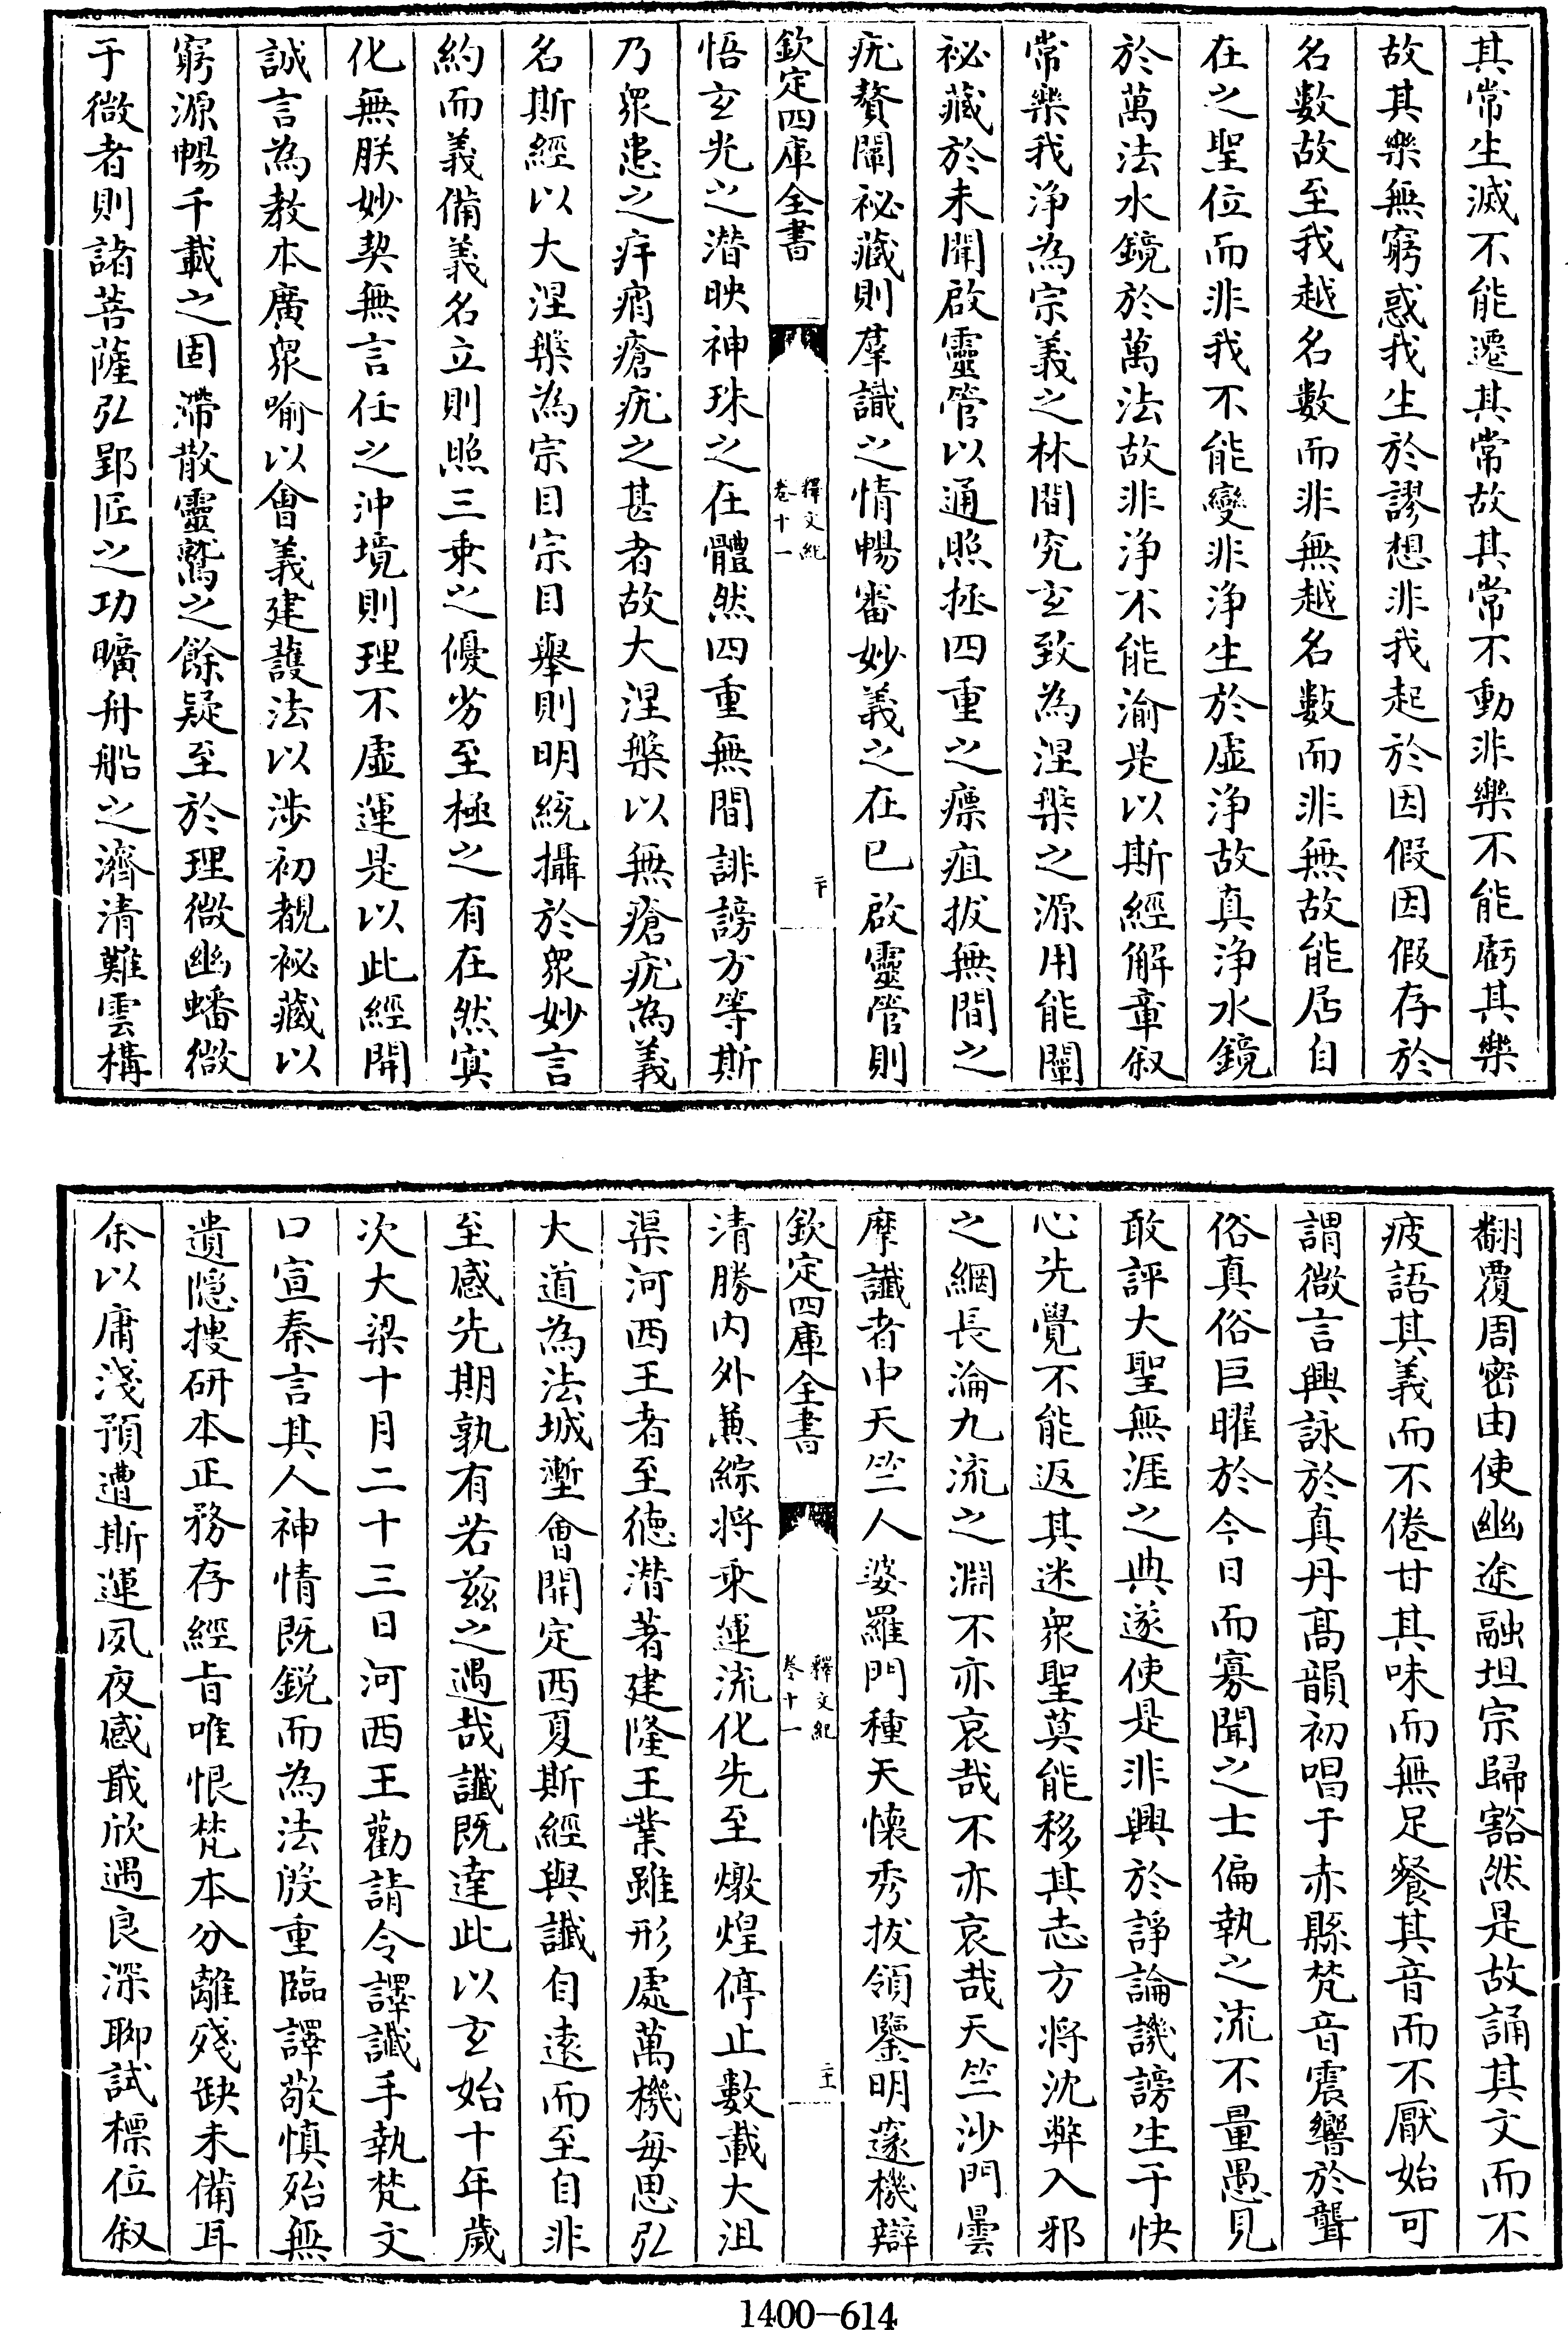 其常生滅不能遷其常故其常不動非樂不能虧其樂
故其樂無窮惑我生於謬想非我起於因假因假存於
名數故至我越名數而非無越名數而非無故能居自
在之聖位而非我不能變非浄生於虛浄故真浄水鏡
於萬法水鏡於萬法故非浄不能渝是以斯經解章叙
常樂我浄為宗義之林開究玄致為涅槃之源用能闡
祕藏於未聞啟靈管以通照拯四重之瘭疽拔無間之
疣贅闡祕藏則羣識之情暢審妙義之在已啟靈管則
欽定四庫全書
釋文紀
卷十一
二十
悟玄光之潛映神珠之在體然四重無間誹謗方等斯
乃衆患之疥痟瘡疣之甚者故大涅槃以無瘡疣為義
名斯經以大涅槃為宗目宗目舉則明統攝於衆妙言
約而義備義名立則照三乗之優劣至極之有在然寘
化無朕妙契無言任之沖境則理不虛運是以此經開
誠言為教本廣衆喻以會義建護法以涉初覩祕藏以
窮源暢千載之固滯散靈鷲之餘疑至於理微幽蟠微
于微者則諸菩薩弘郢匠之功曠舟船之濟清難雲構
翻覆周密由使幽途融坦宗歸豁然是故誦其文而不
疲語其義而不倦甘其味而無足餐其音而不厭始可
謂微言興詠於真丹髙韻初唱于赤縣梵音震響於聾
俗真俗巨曜於今日而寡聞之士偏執之流不量愚見
敢評大聖無涯之典遂使是非興於諍論譏謗生于快
心先覺不能返其迷衆聖莫能移其志方將沈弊入邪
之網長淪九流之淵不亦哀哉不亦哀哉天竺沙門曇
摩讖者中天竺人婆羅門種天懐秀拔領鑒明䆳機辯
欽定四庫全書
釋文紀
卷十一
二十一
清勝内外兼綜將乗運流化先至燉煌停止數載大沮
渠河西王者至徳潛著建隆王業雖形處萬機毎思弘
大道為法城壍會開定西夏斯經與讖自逺而至自非
至感先期孰有若兹之遇哉讖既達此以玄始十年歲
次大梁十月二十三日河西王勸請令譯讖手執梵文
口宣秦言其人神情既鋭而為法殷重臨譯敬慎殆無
遺隐搜研本正務存經旨唯恨梵本分離殘缺未備耳
余以庸淺預遭斯運夙夜感戢欣遇良深聊試標位叙
1400-614